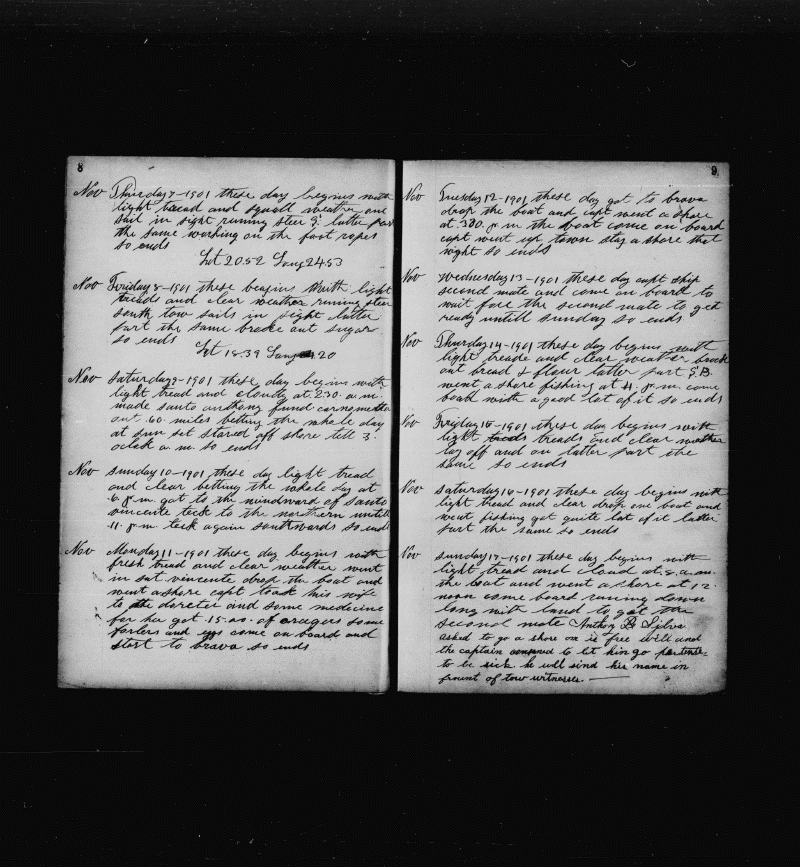 8
Nov Thursday 7-1901 these day begins with
light tread and squall weather one
sail in sight runing steer S. latter part
the same working on the foot ropes
so ends
Lat 20.52 Long 24.53
Nov Friday 8-1901 these beagins with light
treads and clear weather runing steer
south tow sails in sight latter
part the same brake out sugar
so ends
Lat 18.39 Long 20
Nov Saturday 9-1901 these day begins with
light tread and cloudy at 2.30. a.m.
made santo anthony fund
out .60. miles betting the whole day
at sun set stared off shore till 3.
oclok a.m. so ends
Nov Sunday 10-1901 these day light tread
and clear betting the whole day at
6. p.m. got to the windward of santo
vincente teck to the northern untill
11. p.m. teck again southwards so ends
Nov Monday 11-1901 these day begins with
fresh tread and clear weather went
in sat vincente drop the boat and
went a shore capt took his wife
to the docretor and some medicine
for her got 15.00. of oragers some
forlers and eggs come on board and
start to brava so ends
9
Nov Tuesday 12-1901 these day got to brava
drop the boat and capt went a shore
at 3.30. p.m the boat come on board
capt went up town stay a shore that
night so ends
Nov Wednesday 13-1901 these day capt ship
second mate and come on board to
wait fore the second mate to get
ready untill sunday so ends
Nov Thurday 14-1901 these day begins with
light treade and clear weather brock
out bread & flour latter part S.B.
went a shore fishing at 4. p.m. come
boad with a good lot of it so ends
Nov Friday 15-1901 these day begins with
light treads treads and clear weather
lay off and on latter part the
same so ends
Nov Saturday 16-1901 these day begins with
light tread and clear drop one boat and
went fishing got quite lot of it latter
part the same so ends
Nov Sunday 17-1901 these day begins with
light tread and cloud at .8. a.m.
the boat and went a shore at 12.
noon come board runing down
long with land to get the
second mate Anthony B Silva
asked to go a shore on is free will and
the captain to let him go
to be sick he will sind his name in
frount of tow witnesses.